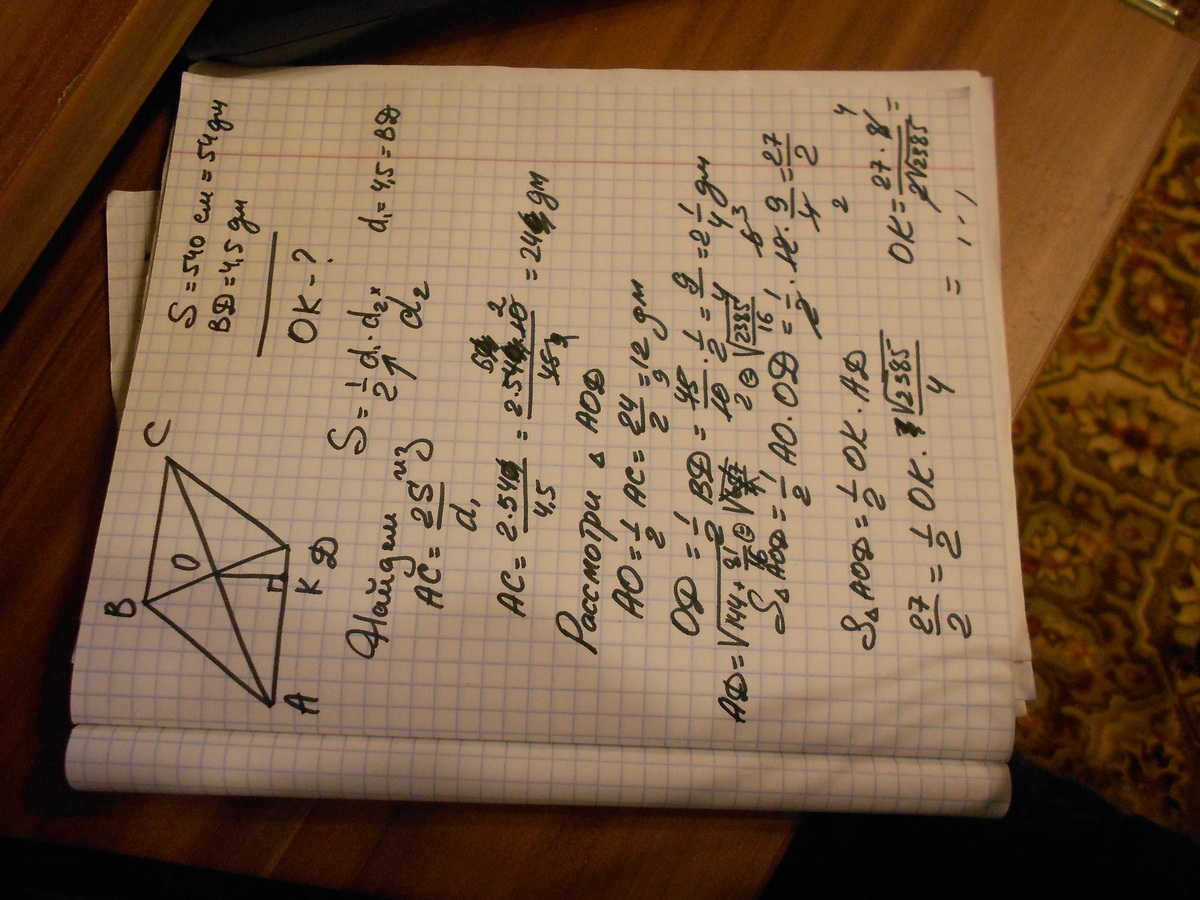 B C
O
A K D
S = 540 см = 54 дм
BD = 4,5 дм
OK - ?
Найдем из S = 1/2 d₁ · d₂
AC = 2S/d₁ d₂ d₁ = 4,5 = BD
AC = 2·54/4,5 = 2·54·10/45 = 24 дм
Рассмотри △ AOD
AO = 1/2 AC = 24/2 = 12 дм
OD = 1/2 BD = 45/10 · 1/2 = 9/4 = 2 1/4 дм
AD = √144 + 81/16 = √2385/16
S△ AOD = 1/2 AO · OD = 1/2 · 12 · 9/4 = 27/2
S△ AOD = 1/2 OK · AD
27/2 = 1/2 OK · √2385/4 OK = 27 · 8/2√2385 =
= ...